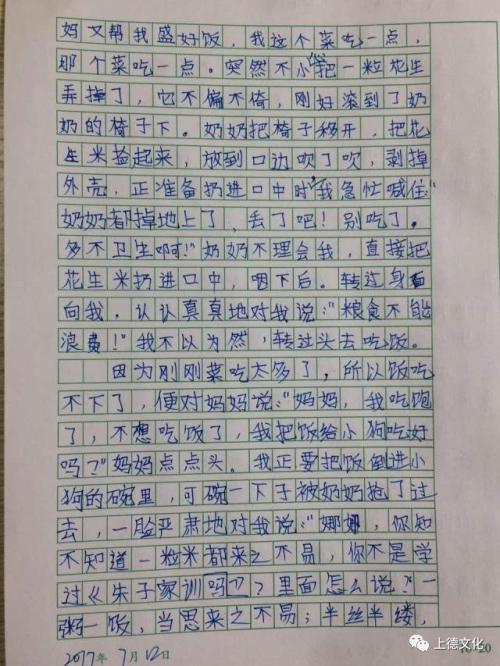 妈又帮我盛好饭，我这个菜吃一点，
那个菜吃一点。突然不小心把一粒花生
弄掉了，它不偏不倚，刚好滚到了奶
奶的椅子下。奶奶把椅子移开，把花
生米捡起来，放到口边吹了吹，剥掉
外壳，正准备扔进口中时，我急忙喊住：“
奶奶都掉地上了，丢了吧！别吃了。
多不卫生啊！”奶奶不理会我，直接把
花生米扔进口中，咽下后。转过身面
向我，认认真真地对我说：“粮食不能
浪费！”我不以为然，转过头去吃饭。
因为刚刚菜吃太多了，所以饭吃
不下了，便对妈妈说：“妈妈，我吃饱
了，不想吃饭了，我把饭给小狗吃好
吗？”妈妈点点头。我正要把饭倒进小
狗的碗里，可碗一下子被奶奶拖了过
去，一脸严肃地对我说：“娜娜，你知
不知道一粒米都来之不易，你不是学
过《朱子家训吗》？里面怎么说？一
粥一饭，当思来之不易；半丝半缕，
2017年7月12日
20
上德文化